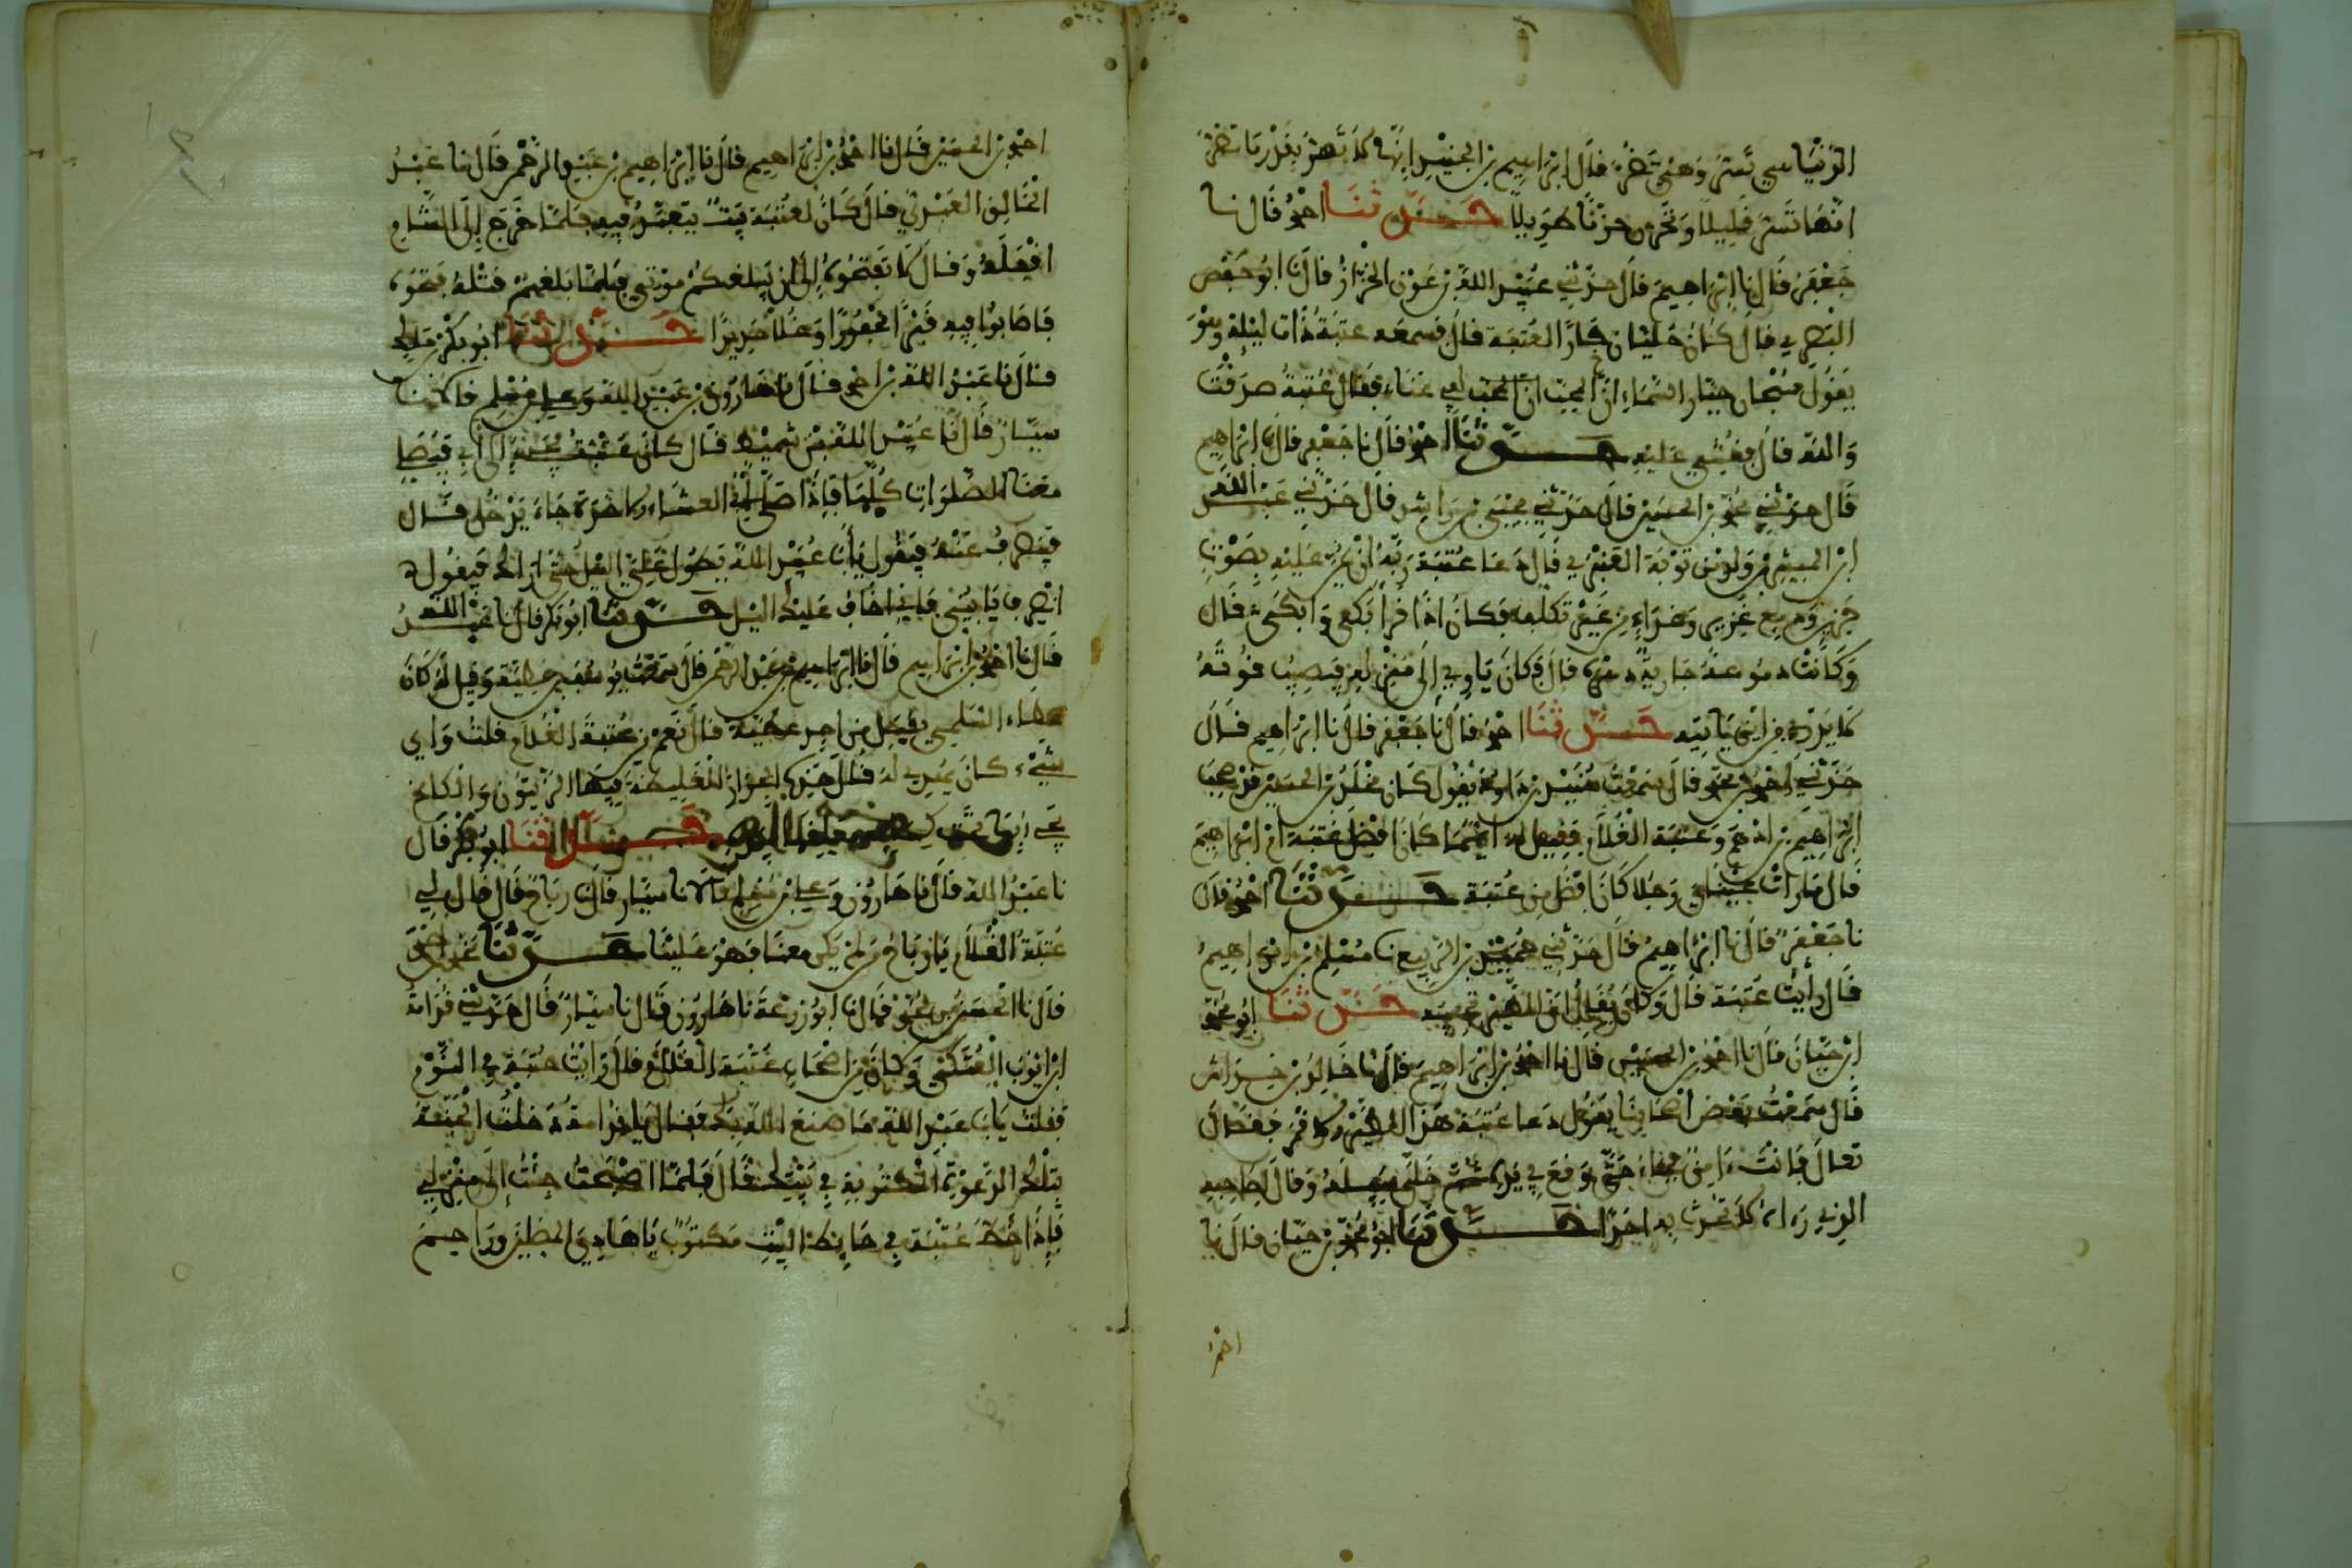 الدنيا سي تستر وهي تحزن قال ابراهيم بن الجنيد انها كما تسر بقدر ما تحزن
انها تسر قليلا وتحزن حزنا طويلا حدثنا احمد قال نا
جعفر قال نا ابراهيم قال حدثني عبيد الله بن عون الخزاز قال نا ابو حفص
البصري قال كان خليلان جارا لعتبة قال فسمعه عتبة ذات ليلة وهو
يقول سبحان جبار السماء ان المحب لفي عناء فقال عتبة صدقت
والله قال فغشي عليه حدثنا احمد قال نا جعفر قال نا ابراهيم
قال حدثني محمد بن الحسين قال حدثني يحيى بن راشد قال حدثني عبد الله
ابن المبشر من ولد توبة العنبري قال دعا عتبة ربه ان يمن عليه بصوت
حزين ودمع غزير وغذاء من غير تكلف فكان اذا قرا بكى وابكى قال
وكانت دموعه جارية دهره قال فكان ياوي الى منزله فيصيب قوته
لا يدري من اين ياتيه حدثنا احمد قال نا جعفر قال نا ابراهيم قال
حدثني احمد بن محمد قال سمعت بن داود يقول كان مخلد بن الحسين قد صحب
ابراهيم بن ادهم وعتبة الغلام فقيل له ايهما كان افضل عتبة او ابراهيم
قال ما رات عيناي رجلا كان افضل من عتبة حدثنا احمد قال
نا جعفر قال نا ابراهيم قال حدثني بن الربيع نا مسلم بن ابراهيم
قال رايت عتبة قال وكان يقال ان الطير تجيبه حدثنا ابو محمد
ابن حيان قال نا احمد بن الحسين قال نا احمد بن ابراهيم قال نا خالد بن خداش
قال سمعت بعض اصحابنا يقول دعا عتبة هذا الطير الاقمر فقال
تعال فانت امن فجاء حتى وقع في يده ثم خلى سبيله وقال لصاحبه
الذي راه لا تخبرن به احدا حدثنا ابو محمد بن حيان قال نا
احمد
احمد بن الحسين قال نا احمد بن ابراهيم قال نا ابراهيم بن عبد الرحمن قال نا عبد
الخالق العبدي قال كان لعتبة بيت يتعبد فيه فلما خرج الى الشام
اقفله وقال لا تفتحوه الى ان يبلغكم موتي فلما بلغهم قتله فتحوه
فاصابوا فيه قبرا محفورا وغلا حديدا حدثنا ابو بكر بن ملك
قال نا عبد الله بن احمد قال نا هارون بن عبد الله وعلي بن مسلم قالا نا
سيار قال نا عبيد الله بن شميط قال كان عتبة يجيء الى ابي فيصلي
معنا الصلوات كلها فاذا صلى العشاء الاخرة جاء يدخل قال
فيصرف عنه فيقول يا ابا عبيد الله يطول علي الليل حتى اراك فيقول له
انصرف يا بني فاني اخاف عليك الليل حدثنا ابو بكر قال نا عبد الله
قال نا احمد بن ابراهيم قال نا ابراهيم بن عبد الرحمن قال سمعت بن عطية وقيل له كان
عطاء السلمي يقبل من احد عطية قال نعم من عتبة الغلام قلت واي
شيء كان يهدي له قال هذه الجوار الغليظة فيها الزيتون والكامخ
حدثنا ابو بكر قال
نا عبد الله قال نا هارون وعلي بن مسلم قالا نا سيار قال نا رباح قال قال لي
عتبة الغلام يا رباح من لم يكن معنا فهو علينا حدثنا
قال نا الحسن بن محمد قال نا ابو زرعة نا هارون قال نا سيار قال حدثني قدامة
ابن ايوب العتكي وكان من اصحاب عتبة الغلام قال رايت عتبة في النوم
فقلت يا ابا عبد الله ما صنع الله بك فقال يا قدامة دخلت الجنة
بتلك الدعوة المكتوبة في بيتك قال فلما اصبحت جئت الى منزلي
فاذا خط عتبة في حائط البيت مكتوب يا هادي المضلين وراحم